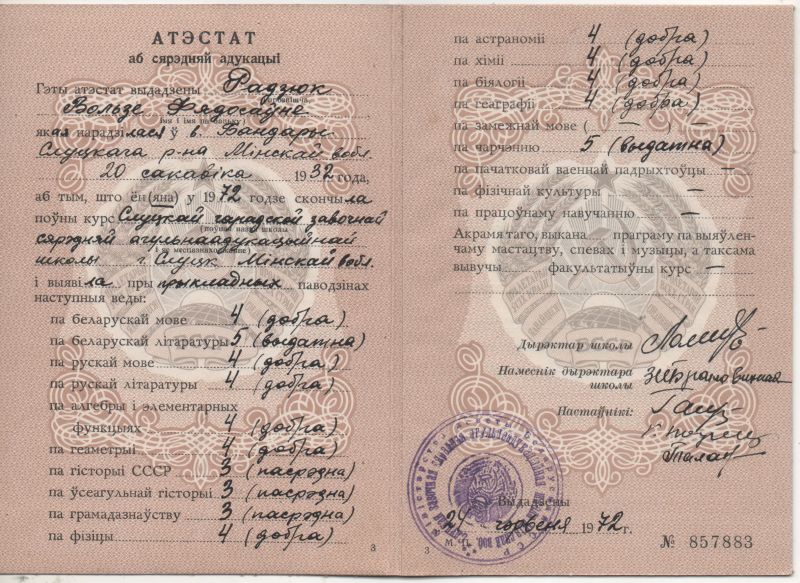 АТЭСТАТ
аб сярэдняй адукацыі
Гэты атэстат выдадзены Радзюк
прозвішча,
Вользе Фядосаўне
імя і імя па бацьку
якая нарадзілася ў в. Бандары
Слуцкага р-на Мінскай вобл.
20 сакавіка 1932 года,
аб тым, што ён (яна) у 1972 годзе скончыла
поўны курс Слуцкай гарадской завочнай
(поўная назва школы
сярэдняй агульнаадукацыйнай
і яе месцазнаходжанне)
школы г. Слуцк Мінскай вобл.
і выявіла пры прыкладных паводзінах
наступныя веды:
па беларускай мове 4 (добра)
па беларускай літаратуры 5 (выдатна)
па рускай мове 4 (добра)
па рускай літаратуры 4 (добра)
па алгебры і элементарных
функцыях 4 (добра)
па геаметрыі 4 (добра)
па гісторыі СССР 3 (пасрэдна)
па ўсеагульнай гісторыі 3 (пасрэдна)
па грамадазнаўству 3 (пасрэдна)
па фізіцы 4 (добра)
3
па астраноміі 4 (добра)
па хіміі 4 (добра)
па біялогіі 4 (добра)
па геаграфіі 4 (добра)
па замежнай мове ( — ) —
па чарчэнню 5 (выдатна)
па пачатковай ваеннай падрыхтоўцы —
па фізічнай культуры —
па працоўнаму навучанню —
Акрамя таго, выкана — праграму па выяўлен-
чаму мастацтву, спевах і музыцы, а таксама
вывучы факультатыўны курс —
Дырэктар школы
Намеснік дырэктара
школы
Настаўнікі:
Выдадзены
24 чэрвеня 1972 г.
М. П.
№ 857883
3